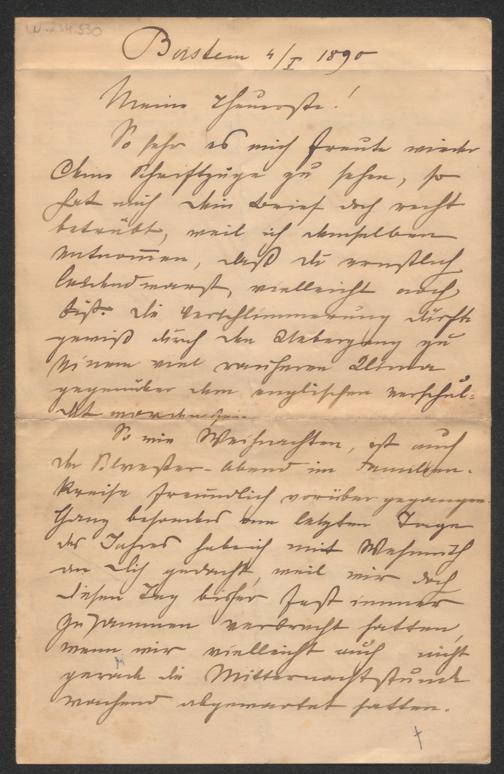 Borstein 4/I 1890
Meine Theuerste!
So sehr es mich freute wieder
Deine Schriftzüge zu sehen, so
hat mich dein Brief doch recht
betrübt, weil ich demselben
entnommen, daß du ernstlich
leidend warst, vielleicht auch
bist. Die Verschlimmerung dürfte
gewiß durch den Uebergang zu
einem viel rauheren Klima
gegenüber dem englischen verschul-
det worden sein.
So wie Weihnachten, ist auch
der Sylvester-Abend im Familien-
kreise freundlich vorüber gegangen.
Ganz besonders am letzten Tage
des Jahres habe ich mit Wehmuth
an Dich gedacht, weil wir doch
diesen Tag bisher fast immer
zusammen verbracht hatten,
wenn wir vielleicht auch nicht
gerade die Mitternachtsstunde
wachend abgewartet hatten.